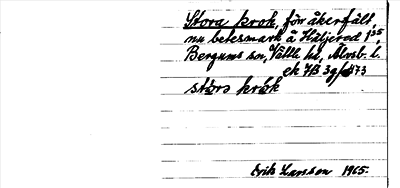 Stora krok, förr åkerfält,
nu betesmark å Häljered 1³⁵
Bergums sn, Vättle hd, Älvsb. l.
ek 7B 3g 473
stòra krók
Erik Larsson 1965.